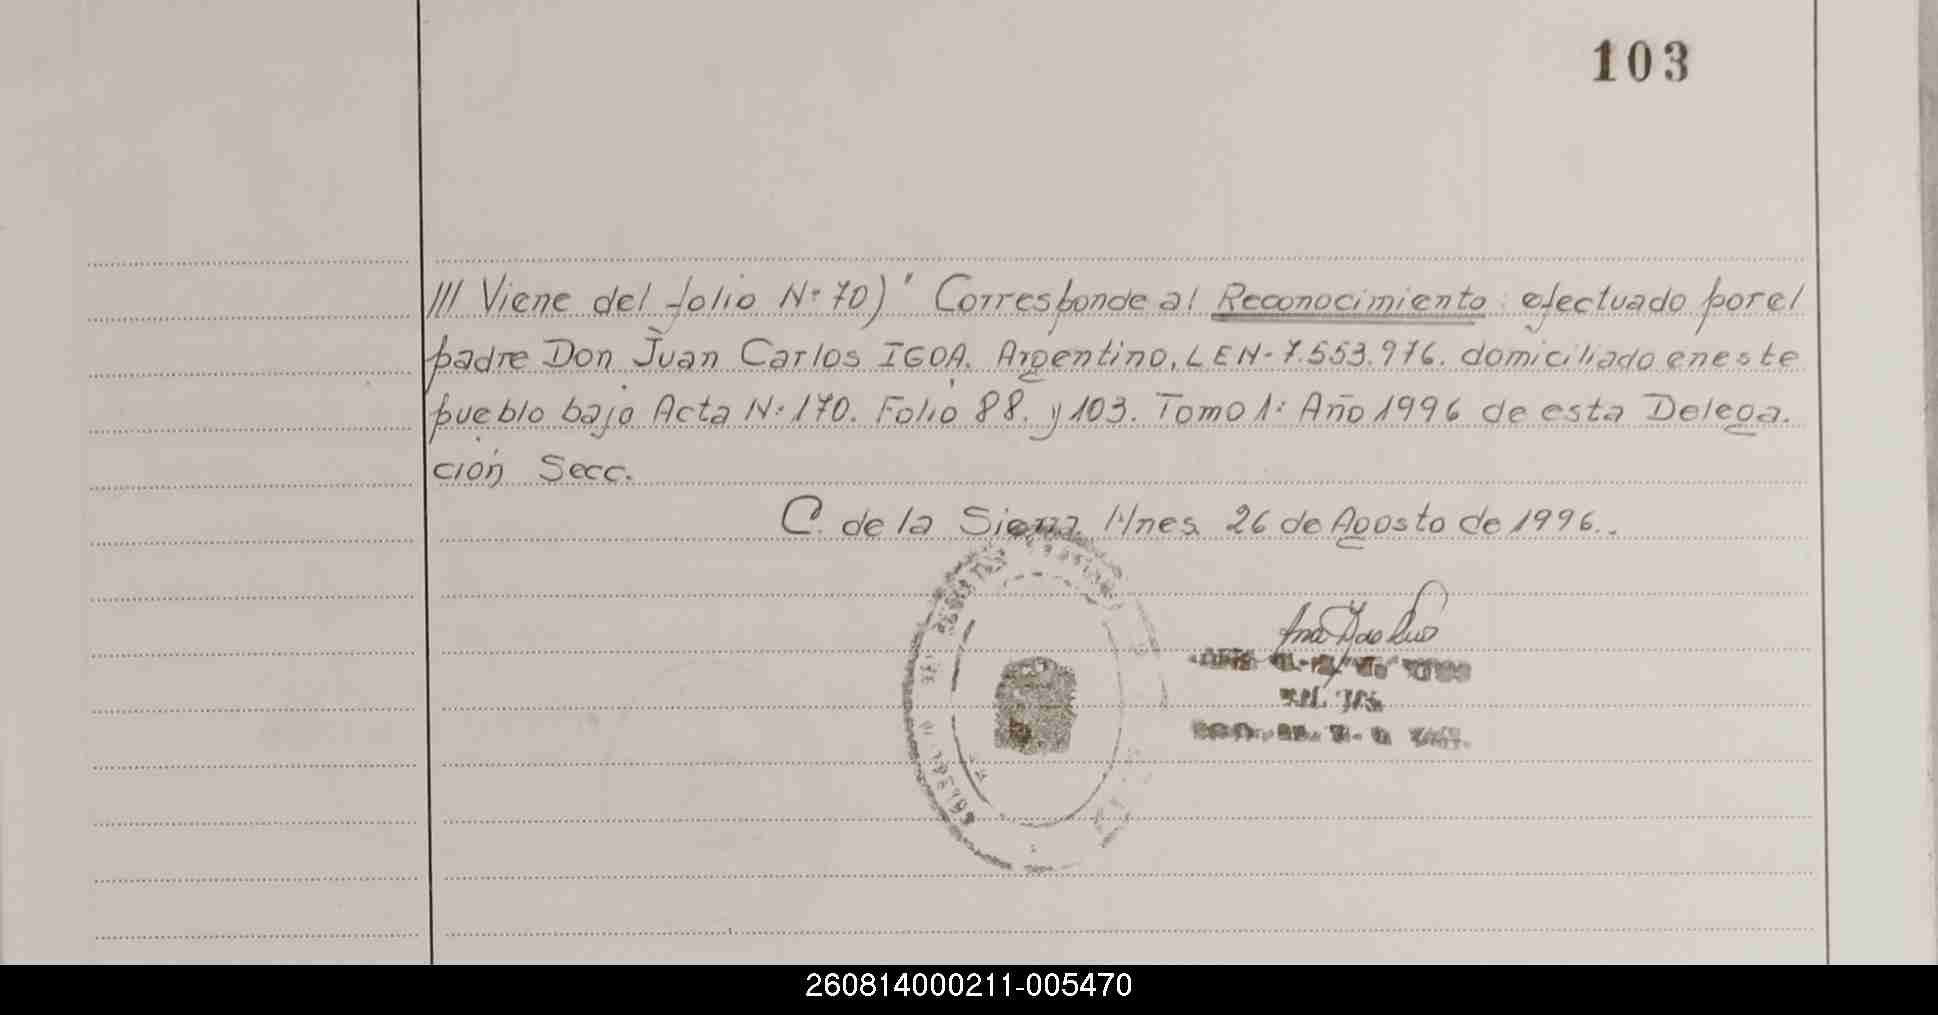 103
/// Viene del folio Nº 70) Corresponde al Reconocimiento efectuado por el
padre Don Juan Carlos IGOA. Argentino, L E Nº 7.553.976. domiciliado en este
pueblo bajo Acta Nº 170. Folio 88. y 103. Tomo 1º Año 1996 de esta Delega.
ción Secc.
C. de la Sierra Mnes 26 de Agosto de 1996..
260814000211-005470